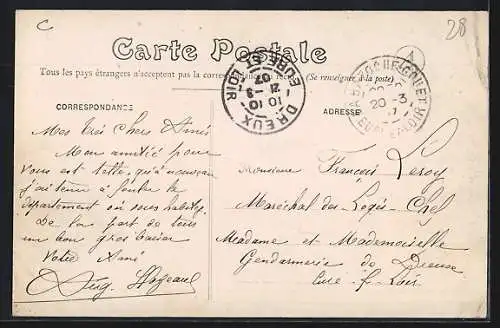 C
28
Carte Postale
Tous les pays étrangers n'acceptent pas la correspondance (Se renseigner à la poste)
A
DREUX
EURE ET LOIR
10 10
21 -3
07
20 -3
CORRESPONDANCE
ADRESSE
Mes très Chers Amis
Mon amitié pour
vous est telle, qu'à nouveau
j'ai tenu à
département où vous habitez
De la part de tous
un bon gros baiser
Votre Ami
Aug.
Monsieur François Leroy
Maréchal des Logis-Chef
Madame et Mademoiselle
Gendarmerie de
Eure-&-Loir